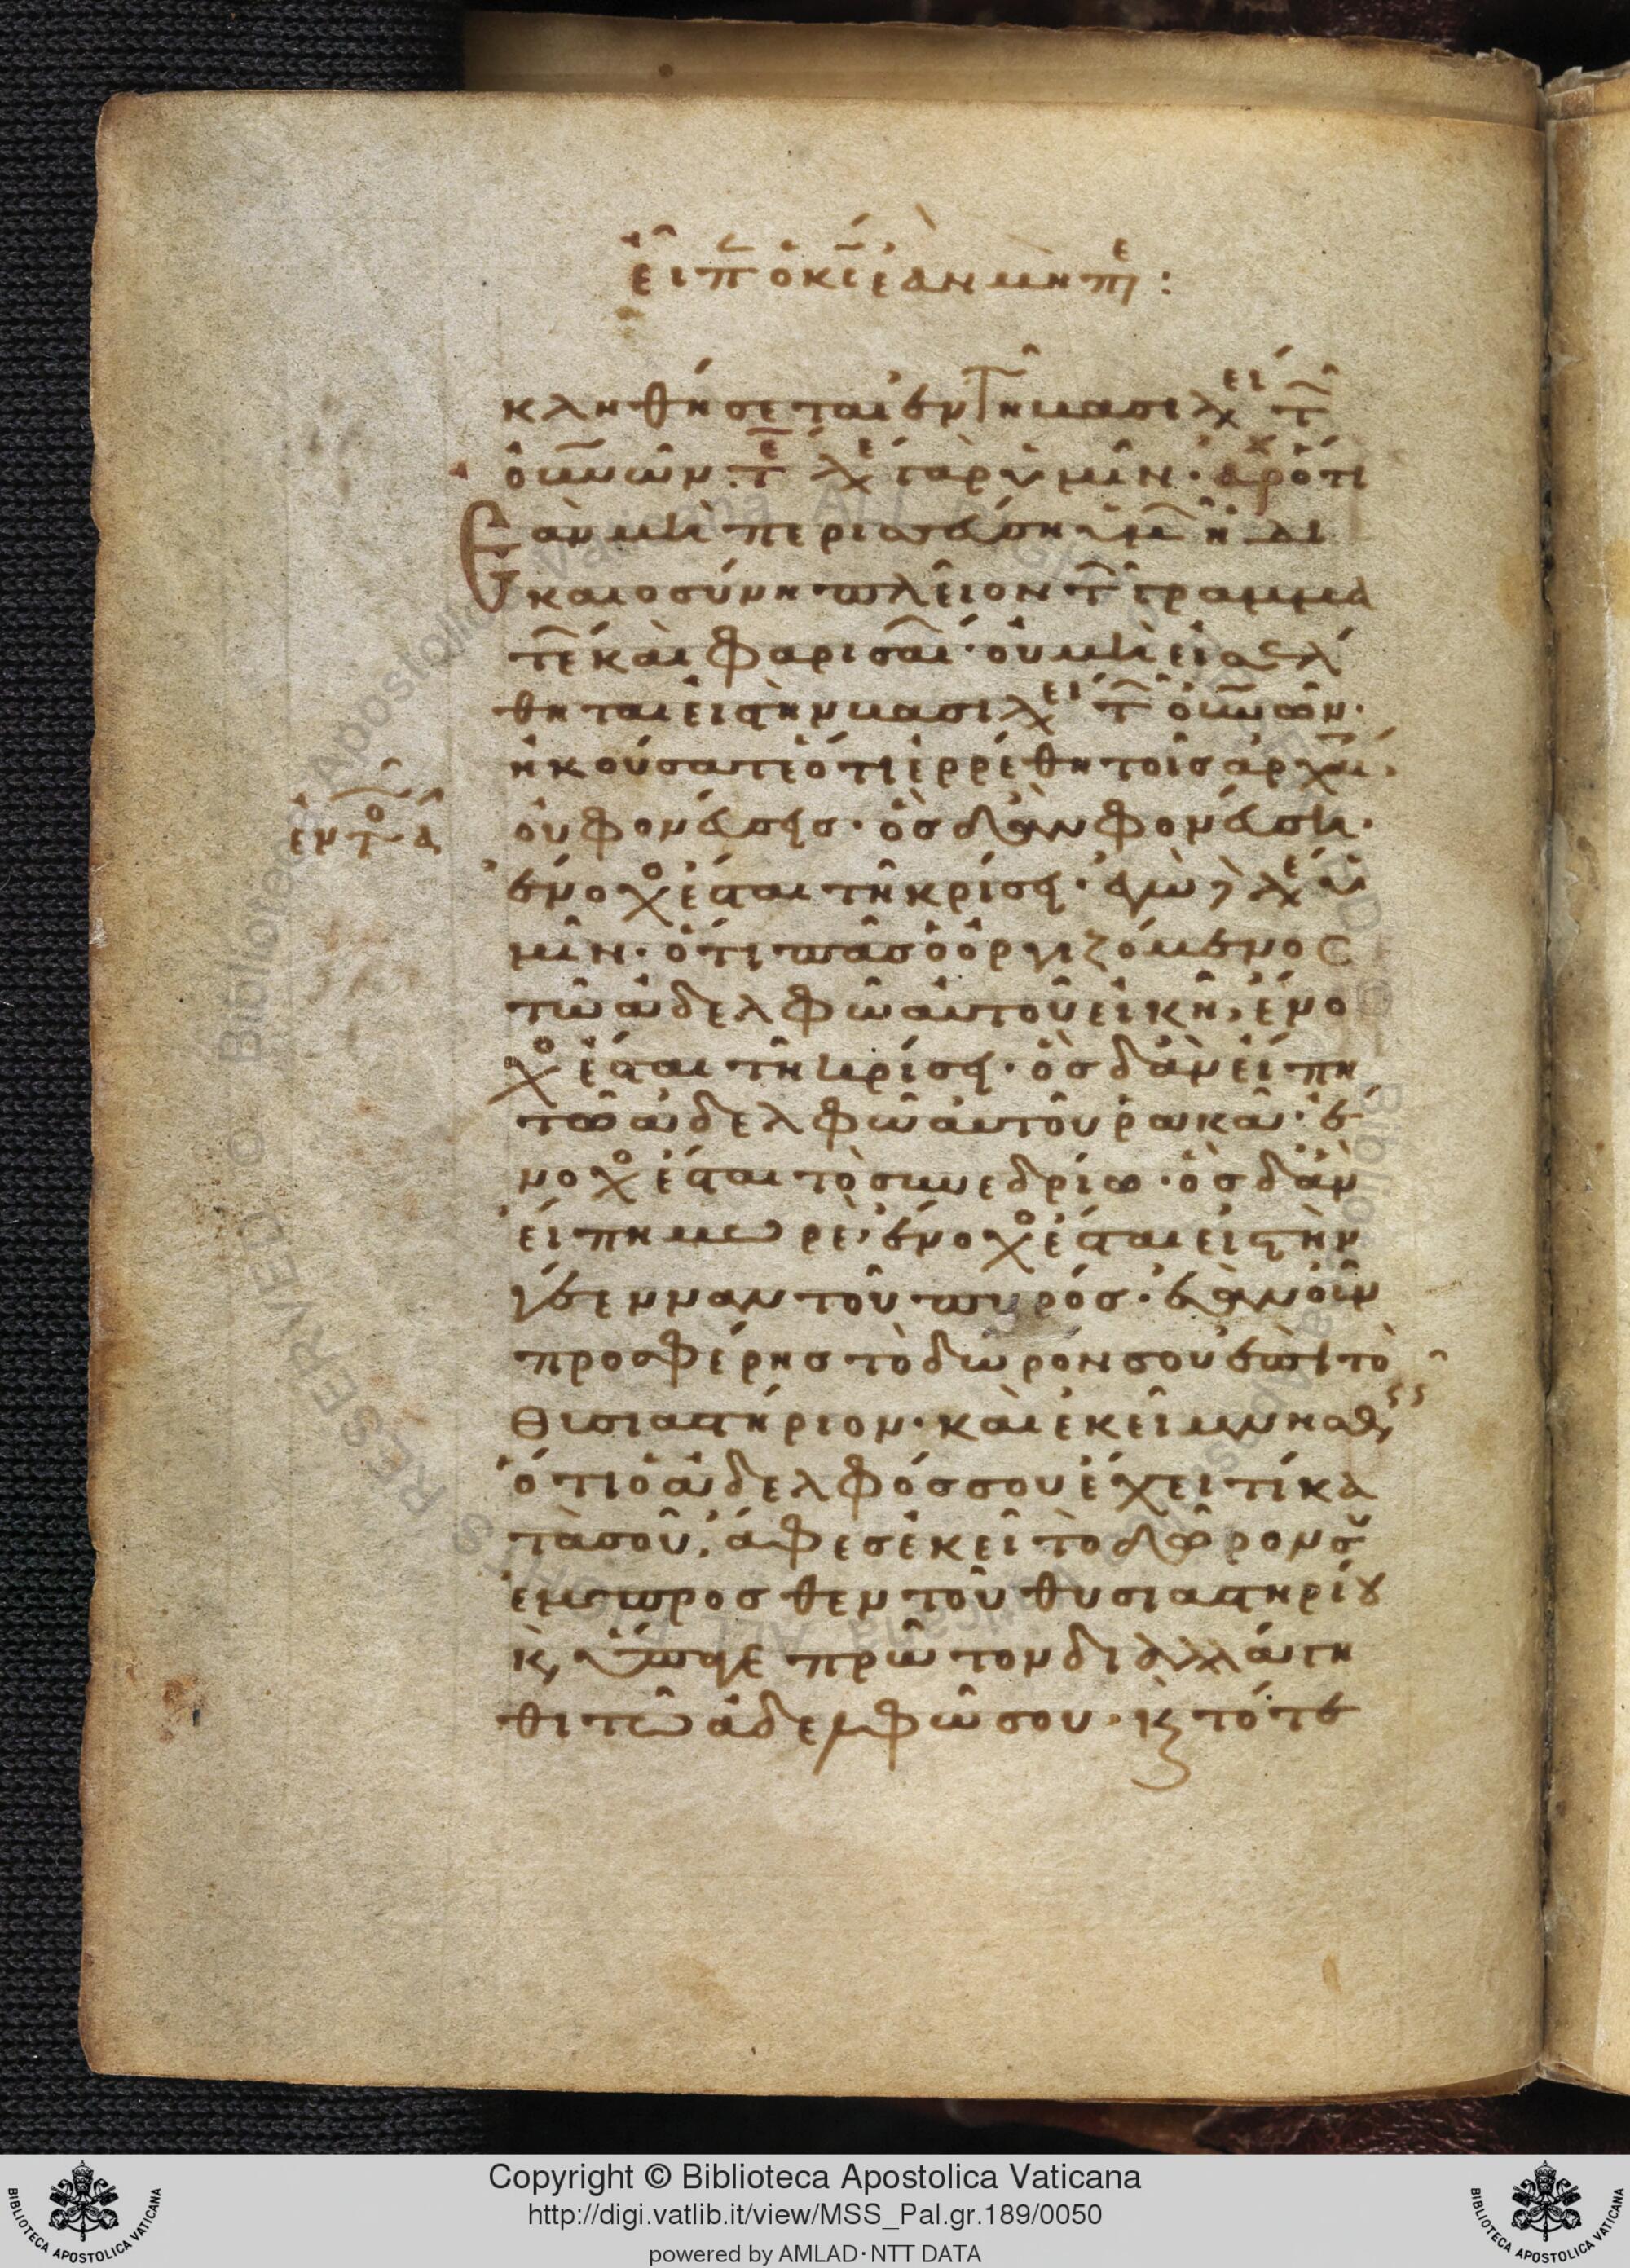 εἶπ ὁ κ̅ς ἐὰν μὴ πε :
κληθήσεται ἐν τῆ βασιλεί τῶ
ὀυνῶν. τε λε γὰρ ὑμῖν. ὅτι
Ἐὰν μὴ περισσεύση ὑμῶ ἡ δι
καιοσύνη πλεῖον τῶ γραμμα
τέ καὶ φαρισαί. οὐ μὴ εἰσέλ
θηται εἰς τὴν βασιλεί τῶ ὀυνῶν.
ἠκούσατε ὅτι ἐρρέθη τοῖς ἀρχαί.
ἐν τ
οὐ φονεύσεις. ὃς δ' ἂν φονεύση.
ἔνοχο ἔσται τῆ κρίσει. ἐγὼ δὲ λέ ὑ
μῖν. ὅτι πᾶς ὁ ὀργιζόμενος
τῶ ἀδελφῶ αὐτοῦ εἰκῆ, ἔνο
χο ἔσται τῆ κρίσει. ὃς δ' ἂν εἴπη
τῶ ἀδελφῶ αὐτοῦ ρακᾶ. ἔ
νοχο ἔσται τὸ συνεδρίω. ὃς δ' ἂν
εἴπη μωρὲ, ἔνοχο ἔσται εἰς τὴν
γέενναν τοῦ πυρός. ἐὰν οὖν
προσφέρης τὸ δῶρον σου ἐπὶ τὸ
θισιαστήριον. καὶ ἐκεῖ μνησθς
ὅτι ὁ ἀδελφός σου ἔχει τί κα
τὰ σοῦ, ἄφες ἐκεῖ τὸ δῶρον σου
ἔμπροσθεν τοῦ θυσιαστηρίου
κ, ὕπαγε πρῶτον διαλλάγη
θι τῶ ἀδελφῶ σου. κ τότε
Copyright © Biblioteca Apostolica Vaticana
http://digi.vatlib.it/view/MSS_Pal.gr.189/0050
powered by AMLAD·NTT DATA
BIBLIOTECA APOSTOLICA VATICANA
BIBLIOTECA APOSTOLICA VATICANA